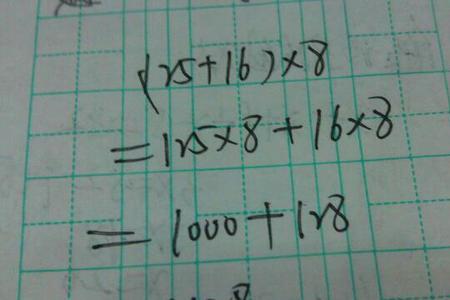 (25+16)×8
=125×8+16×8
=1000+128